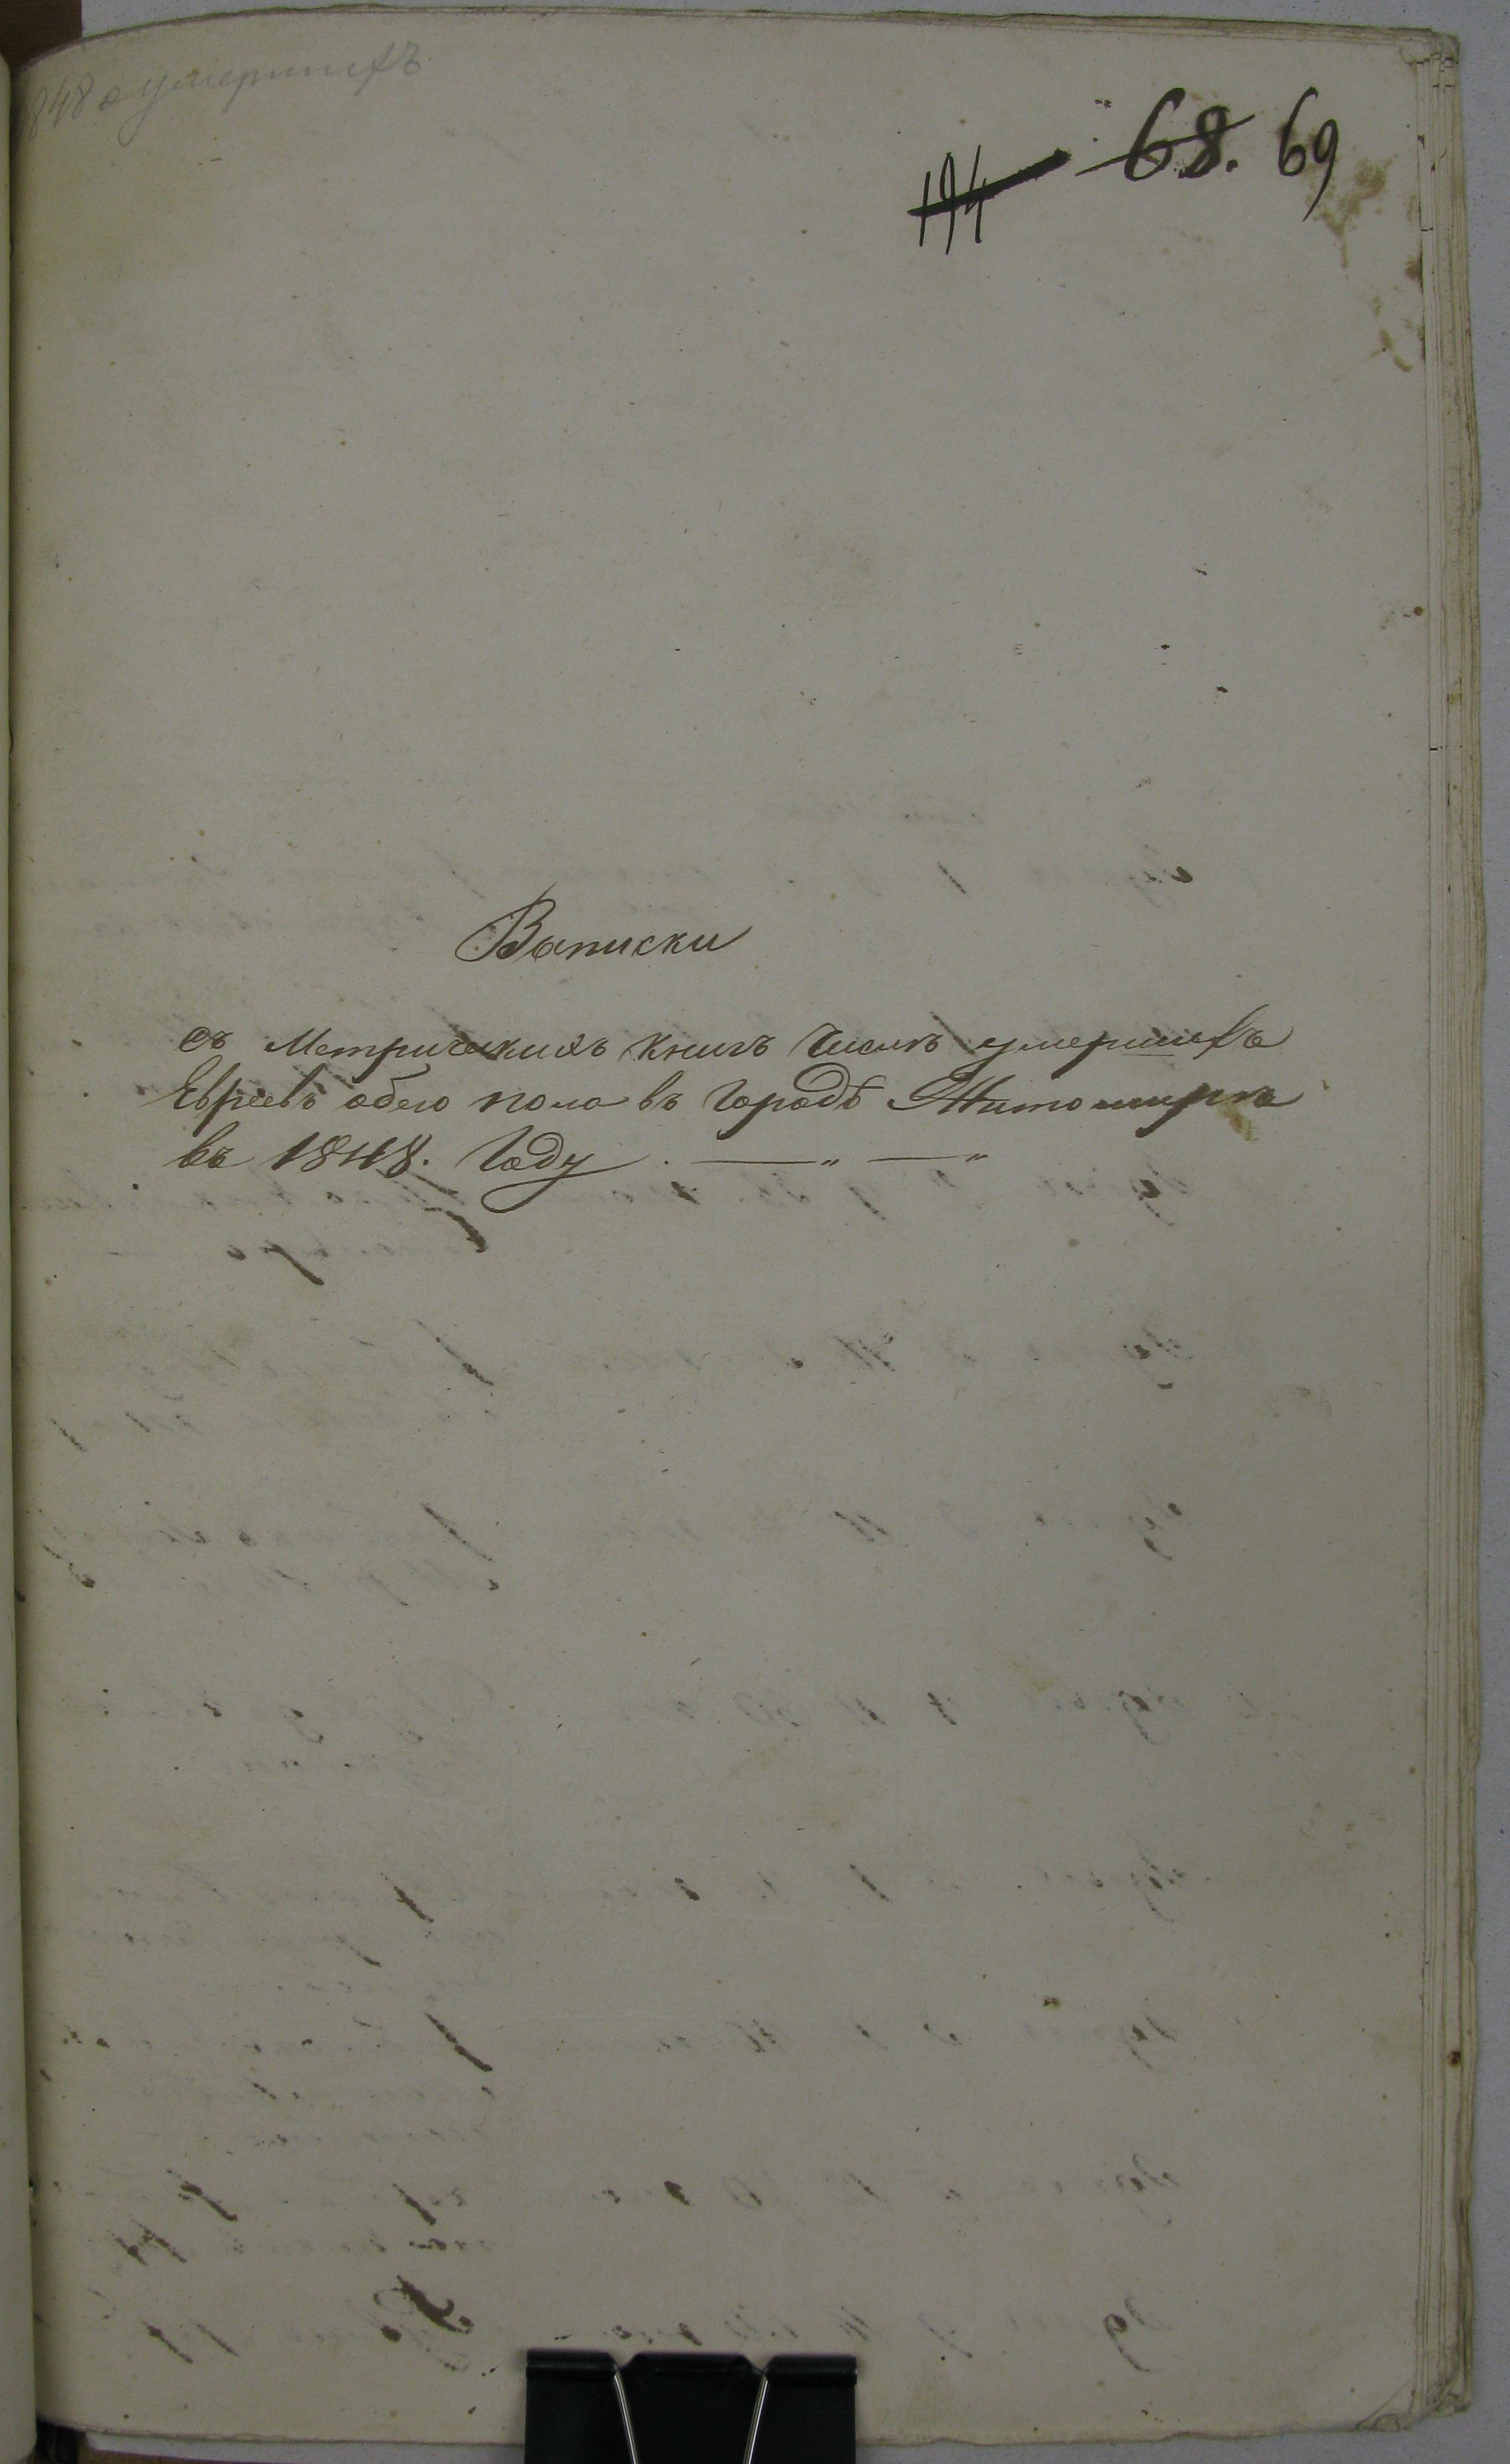 1848 о умершихъ
194 68. 69
Выписки
съ Метрическихъ книгъ Числѣ умершихъ
Евреевъ обего пола въ Городѣ Житомирѣ
въ 1848. Году. — „ — „